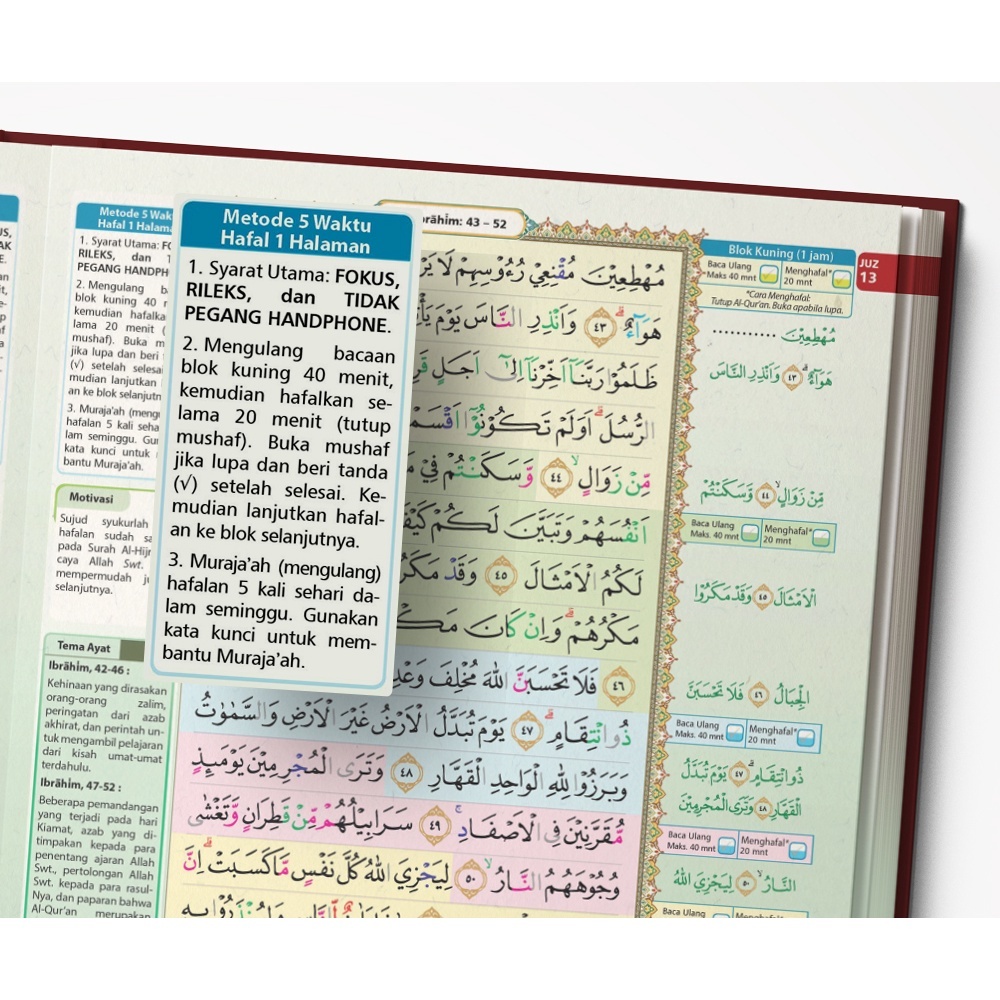 Metode 5 Waktu
Hafal 1 Halaman
1. Syarat Utama: FOKUS,
RILEKS, dan TIDAK
PEGANG HANDPHONE.
2. Mengulang bacaan
blok kuning 40 menit,
kemudian hafalkan se-
lama 20 menit (tutup
mushaf). Buka mushaf
jika lupa dan beri tanda
(√) setelah selesai. Ke-
mudian lanjutkan hafal-
an ke blok selanjutnya.
3. Muraja’ah (mengulang)
hafalan 5 kali sehari da-
lam seminggu. Gunakan
kata kunci untuk mem-
bantu Muraja’ah.
Motivasi
Sujud syukurlah
hafalan sudah
pada Surah
caya Allah Swt.
mempermudah
selanjutnya.
Tema Ayat
Ibrāhīm, 42-46 :
Kehinaan yang dirasakan
orang-orang zalim,
peringatan dari azab
akhirat, dan perintah un-
tuk mengambil pelajaran
dari kisah umat-umat
terdahulu.
Ibrāhīm, 47-52 :
Beberapa pemandangan
yang terjadi pada hari
Kiamat, azab yang di-
timpakan kepada para
penentang ajaran Allah
Swt., pertolongan Allah
Swt. kepada para rasul-
Nya, dan paparan bahwa
Al-Qur’an merupakan
brāhīm: 43 – 52
مُهْطِعِيْنَ مُقْنِعِيْ رُءُوْسِهِمْ لَا
هَوَاۤءٌ ۗ ٤٣ وَاَنْذِرِ النَّاسَ يَوْمَ
ظَلَمُوْا رَبَّنَآ اَخِّرْنَآ اِلٰٓى اَجَلٍ
الرُّسُلَ ۗ اَوَلَمْ تَكُوْنُوْٓا
مِّنْ زَوَالٍ ۙ ٤٤ وَّسَكَنْتُمْ فِيْ
اَنْفُسَهُمْ وَتَبَيَّنَ لَكُمْ
لَكُمُ الْاَمْثَالَ ٤٥ وَقَدْ
مَكْرُهُمْ ۗ وَاِنْ كَانَ
٤٦ فَلَا تَحْسَبَنَّ اللّٰهَ مُخْلِفَ
ذُو انْتِقَامٍ ۗ ٤٧ يَوْمَ تُبَدَّلُ الْاَرْضُ غَيْرَ الْاَرْضِ وَالسَّمٰوٰتُ
وَبَرَزُوْا لِلّٰهِ الْوَاحِدِ الْقَهَّارِ ٤٨ وَتَرَى الْمُجْرِمِيْنَ يَوْمَىِٕذٍ
مُّقَرَّنِيْنَ فِى الْاَصْفَادِ ۚ ٤٩ سَرَابِيْلُهُمْ مِّنْ قَطِرَانٍ وَّتَغْشٰى
وُجُوْهَهُمُ النَّارُ ۙ ٥٠ لِيَجْزِيَ اللّٰهُ كُلَّ نَفْسٍ مَّا كَسَبَتْ ۗ اِنَّ
Blok Kuning (1 jam)
Baca Ulang
*Maks 40 mnt
Menghafal*
20 mnt
*Cara Menghafal:
Tutup Al-Qur’an. Buka apabila lupa.
JUZ
13
مُهْطِعِيْنَ ............
هَوَاۤءٌ ۗ ٤٣ وَاَنْذِرِ النَّاسَ
مِّنْ زَوَالٍ ۙ ٤٤ وَّسَكَنْتُمْ
Baca Ulang
Maks. 40 mnt
Menghafal*
20 mnt
الْاَمْثَالَ ٤٥ وَقَدْ مَكَرُوْا
الْجِبَالُ ٤٦ فَلَا تَحْسَبَنَّ
Baca Ulang
Maks. 40 mnt
Menghafal*
20 mnt
ذُو انْتِقَامٍ ۗ ٤٧ يَوْمَ تُبَدَّلُ
الْقَهَّارِ ٤٨ وَتَرَى الْمُجْرِمِيْنَ
Baca Ulang
Maks. 40 mnt
Menghafal*
20 mnt
النَّارُ ۙ ٥٠ لِيَجْزِيَ اللّٰهُ
Baca Ulang
Menghafal*